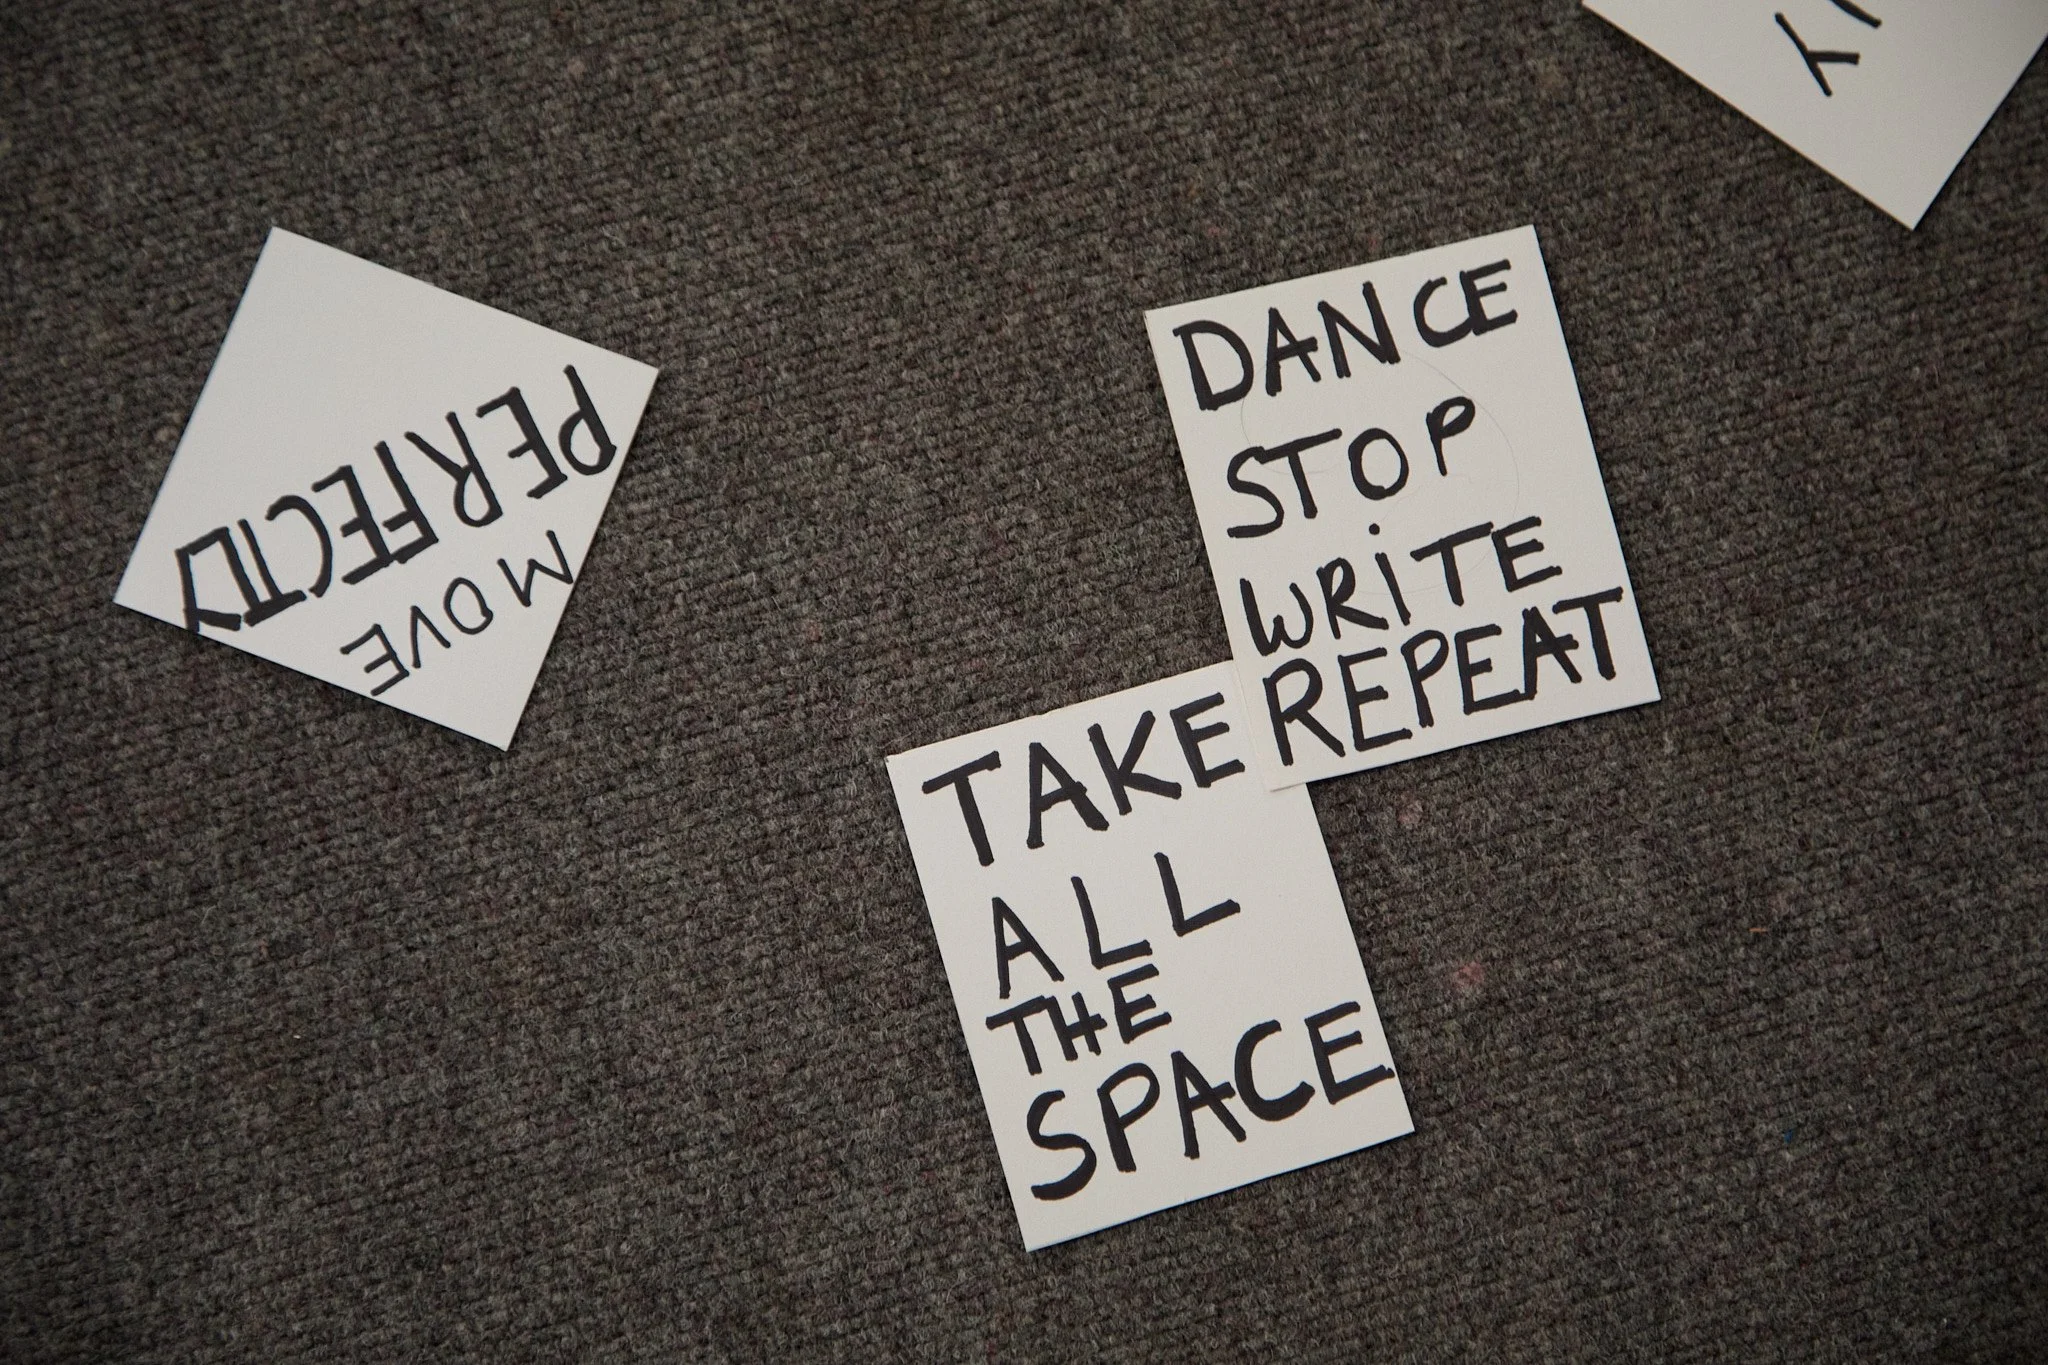 MOVE
PERFECTLY
DANCE
STOP
WRITE
REPEAT
TAKE
ALL
THE
SPACE